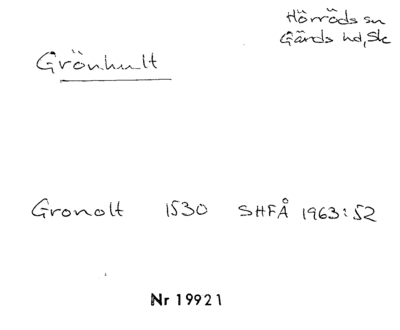 Hörröds sn
Gärds hd, Sk
Grönhult
Gronolt 1530 SHFÅ 1963:52
Nr 19921